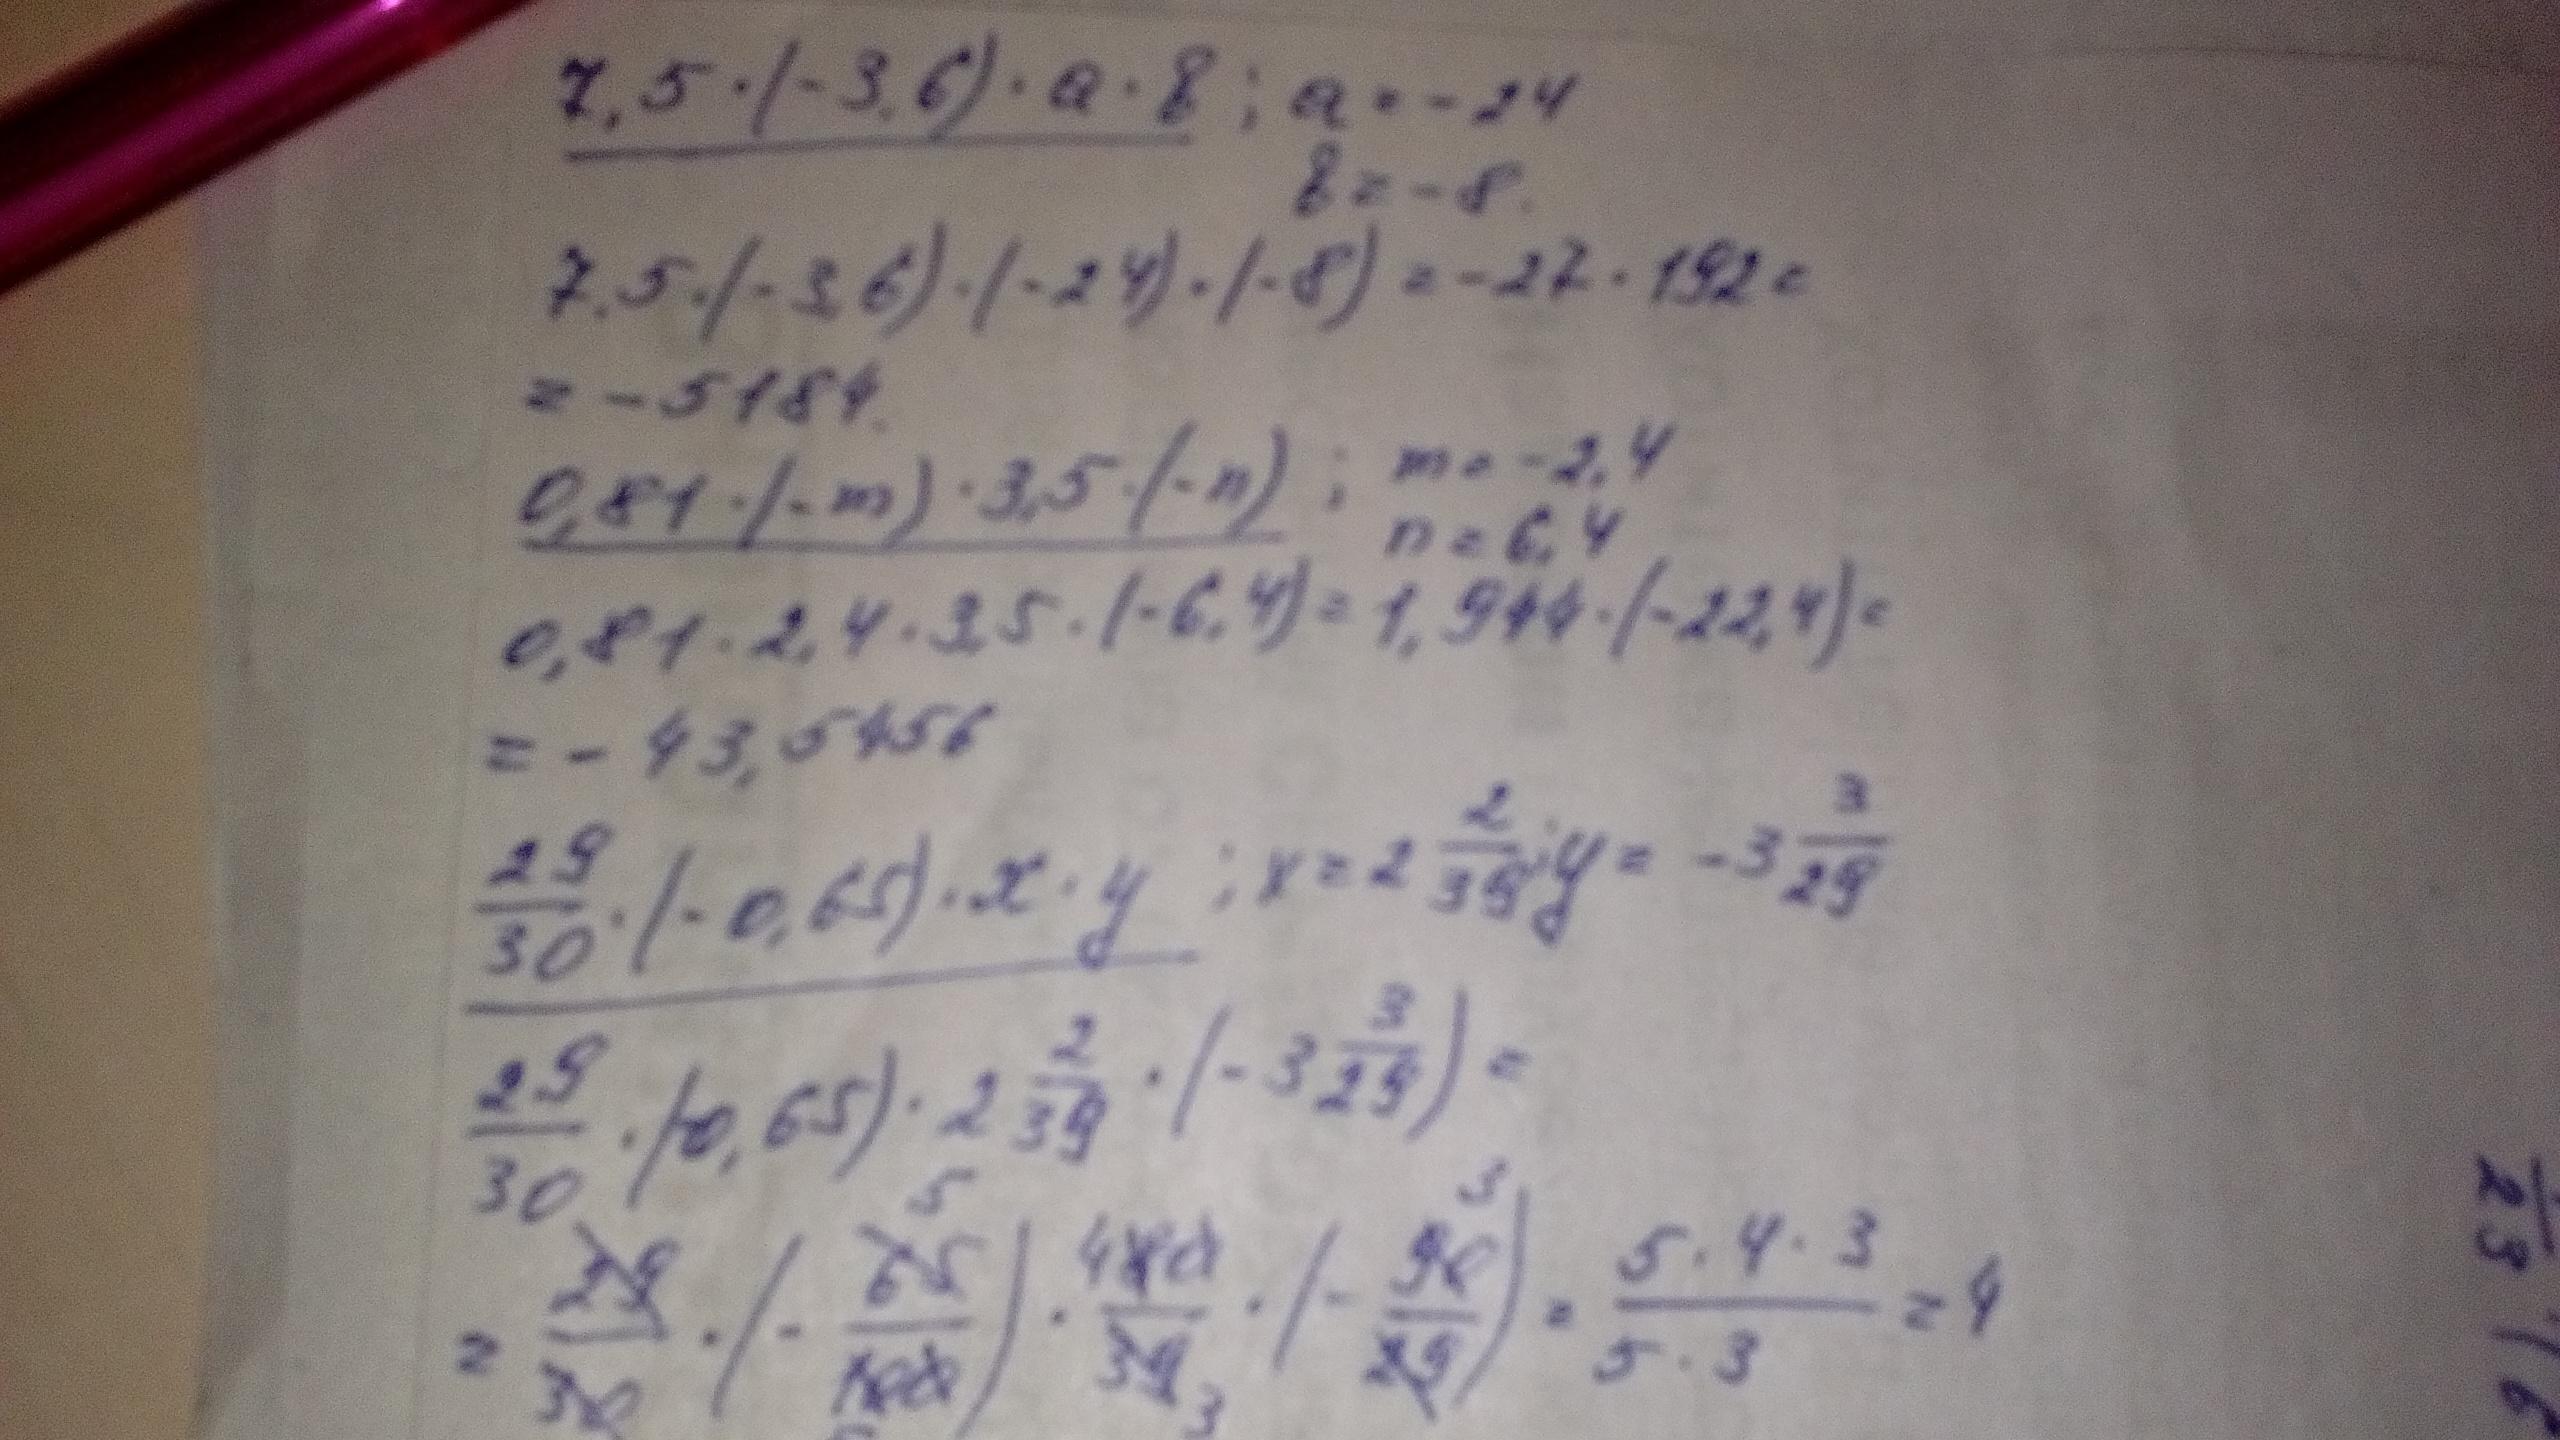 7,5 · (-3,6) · a · b ; a = -24
b = -8.
7,5 · (-3,6) · (-24) · (-8) = -27 · 192 =
= -5184.
0,81 · (-m) · 3,5 · (-n) ; m = -2,4
n = 6,4
0,81 · 2,4 · 3,5 · (-6,4) = 1,944 · (-22,4) =
= -43,5456
29/30 · (-0,65) · x · y ; x = 2 2/39 ; y = -3 3/29
29/30 · (-0,65) · 2 2/39 · (-3 3/29) =
= 29/30 · (-65/100) · 80/39 · (-90/29) = 5 · 4 · 3 / 5 · 3 = 4